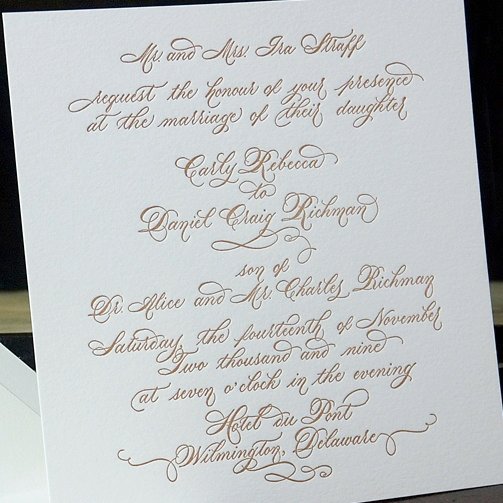 Mr. and Mrs. Ira Straff
request the honour of your presence
at the marriage of their daughter
Carly Rebecca
to
Daniel Craig Richman
son of
Dr. Alice and Mr. Charles Richman
Saturday, the fourteenth of November
Two thousand and nine
at seven o'clock in the evening
Hotel du Pont
Wilmington, Delaware